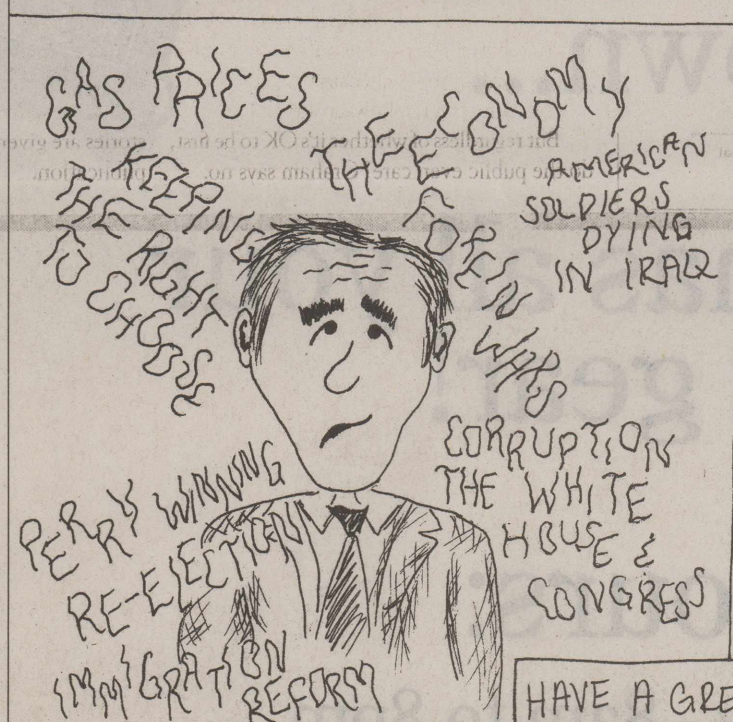 GAS PRICES
THE ECONOMY
AMERICAN
SOLDIERS
DYING
IN IRAQ
KEEPING
THE RIGHT
TO CHOOSE
FOREIN
WARS
CORRUPTION
THE WHITE
HOUSE &
CONGRESS
PERRY WINNING
RE-ELECTION
IMMIGRATION
REFORM
HAVE A GRE